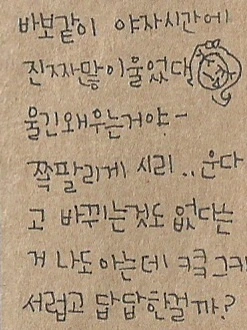 바보같이 야자시간에
진짜많이울었다
울긴왜우는거야-
쪽팔리게 시리.. 운다
고 바뀌는것도 없다는
거 나도 아는데 ㅋ큭 그ㅋ
서럽고 답답한걸까?